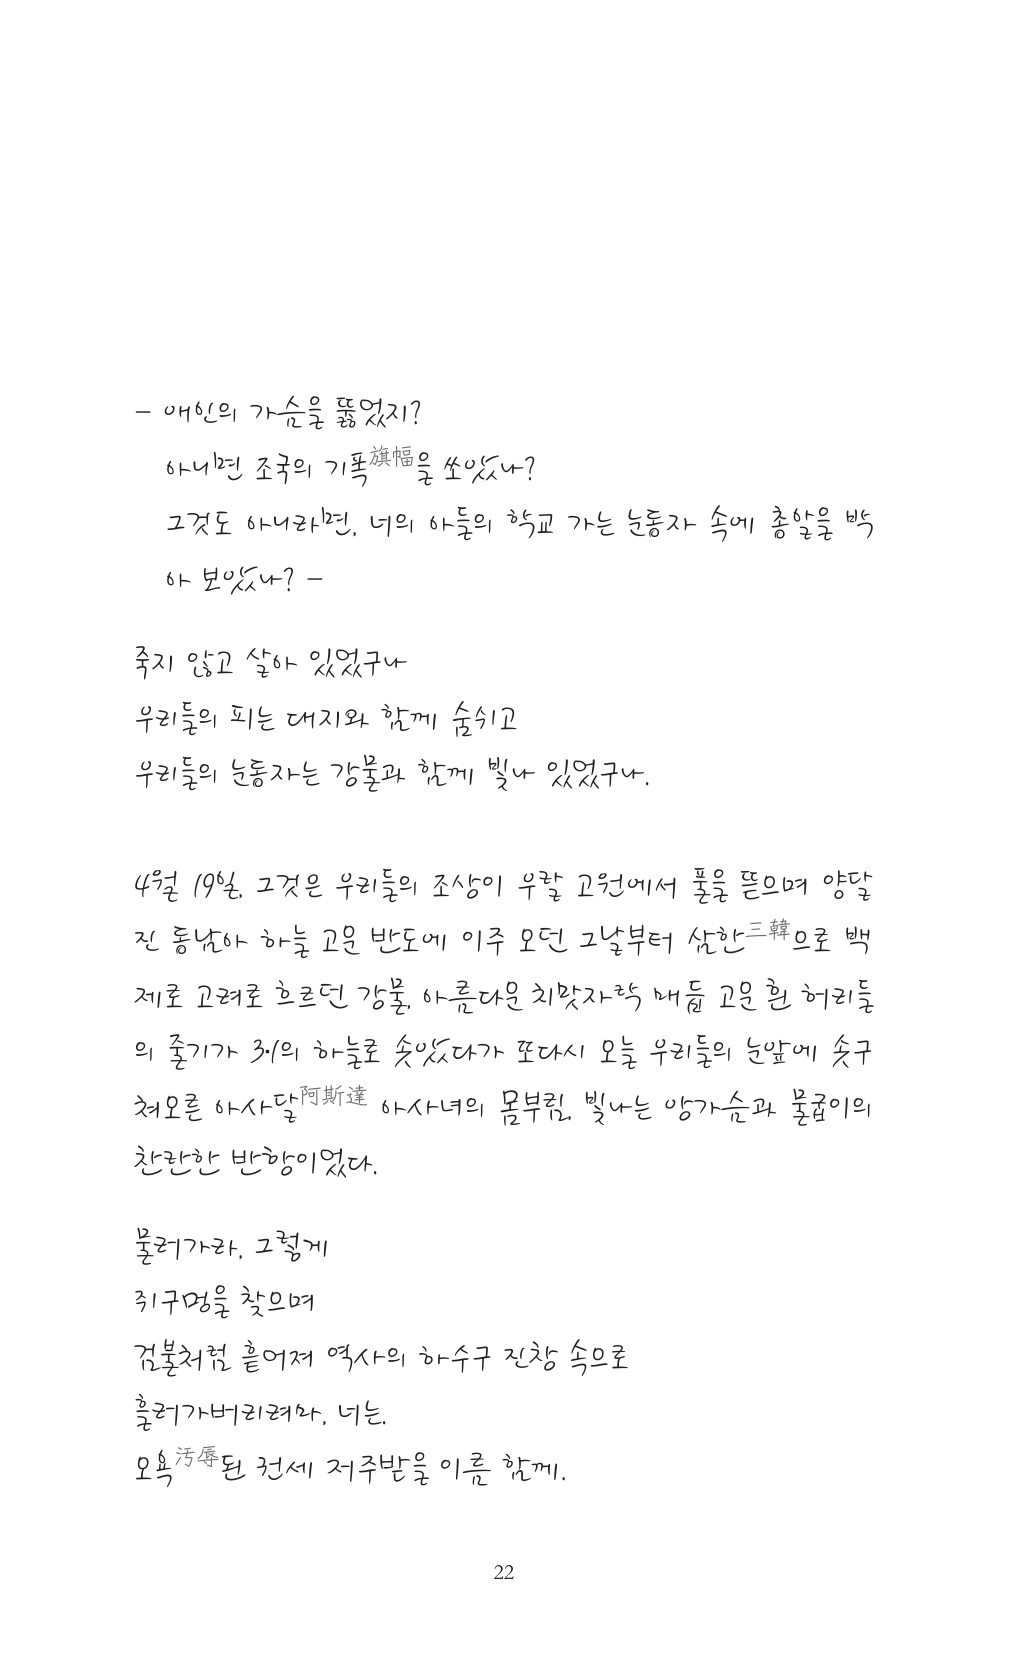 – 애인의 가슴을 뚫었지?
아니면 조국의 기폭旗幅을 쏘았나?
그것도 아니라면, 너의 아들의 학교 가는 눈동자 속에 총알을 박
아 보았나? –
죽지 않고 살아 있었구나
우리들의 피는 대지와 함께 숨쉬고
우리들의 눈동자는 강물과 함께 빛나 있었구나.
4월 19일, 그것은 우리들의 조상이 우랄 고원에서 풀을 뜯으며 양달
진 동남아 하늘 고운 반도에 이주 오던 그날부터 삼한三韓으로 백
제로 고려로 흐르던 강물, 아름다운 치맛자락 매듭 고운 흰 허리들
의 줄기가 3·1의 하늘로 솟았다가 또다시 오늘 우리들의 눈앞에 솟구
쳐오른 아사달阿斯達 아사녀의 몸부림, 빛나는 앙가슴과 물굽이의
찬란한 반항이었다.
물러가라, 그렇게
쥐구멍을 찾으며
검불처럼 흩어져 역사의 하수구 진창 속으로
흘러가버리려마, 너는.
오욕汚辱된 권세 저주받을 이름 함께.
22